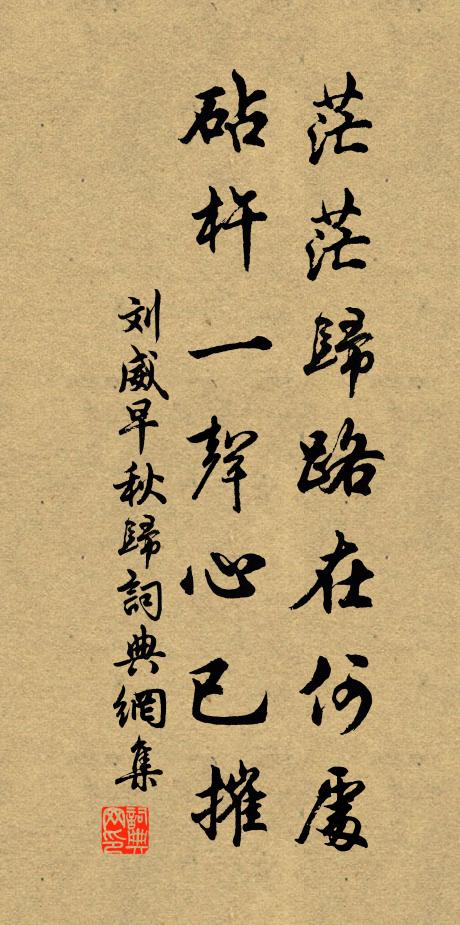 茫茫歸路在何處
砧杵一聲心已摧
刘威早秋歸詞典網集
詞典网印